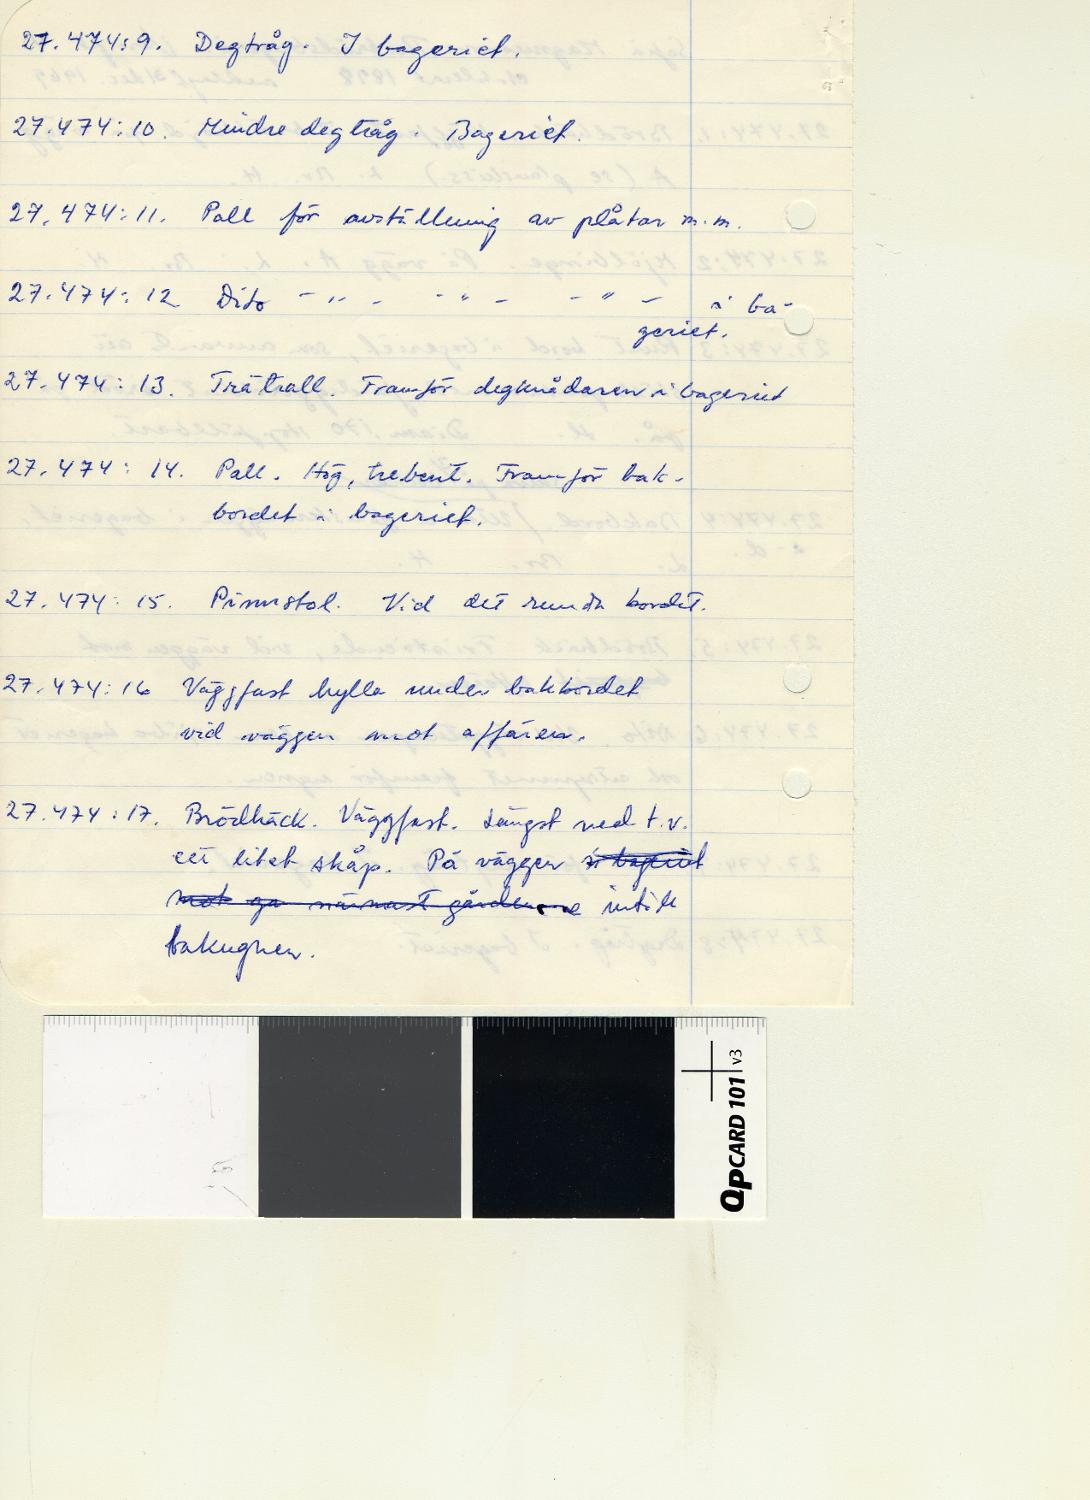 27.474:9. Degtråg. I bageriet.
27.474:10. Mindre degtråg. Bageriet.
27.474:11. Pall för avställning av plåtar m.m.
27.474:12 Dito - " - - " - - " - i ba-
geriet.
27.474:13. Trätrall. Framför degknådaren i bageriet
27.474:14. Pall. Hög, trebent. Framför bak-
bordet i bageriet.
27.474:15. Pinnstol. Vid det runda bordet.
27.474:16 Väggfast hylla under bakbordet
vid väggen mot affären.
27.474:17. Brödhäck. Väggfast. Längst ned t.v.
ett litet skåp. På väggen i bageriet
mot ga närmast gården intill
bakugnen.
QpCARD 101 v3